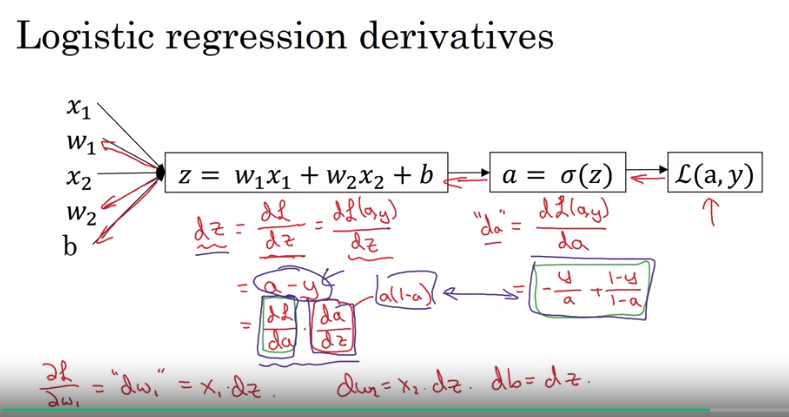 Logistic regression derivatives
x₁
w₁
x₂
w₂
b
z = w₁x₁ + w₂x₂ + b
a = σ(z)
ℒ(a, y)
dz = dℒ/dz = dℒ(a,y)/dz
"da" = dℒ(a,y)/da
= a - y
a(1-a)
= -y/a + (1-y)/(1-a)
= dℒ/da · da/dz
∂ℒ/∂w₁ = "dw₁" = x₁·dz. dw₂ = x₂·dz. db = dz.